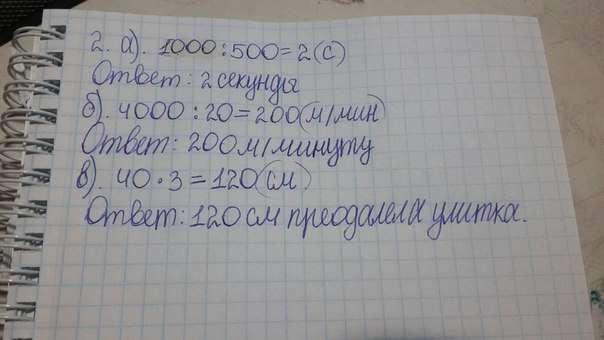 2. а). 1000 : 500 = 2 (с)
Ответ: 2 секунды
б). 4000 : 20 = 200 (м/мин)
Ответ: 200 м/минуту
в). 40 · 3 = 120 (см)
Ответ: 120 см преодалела улитка.